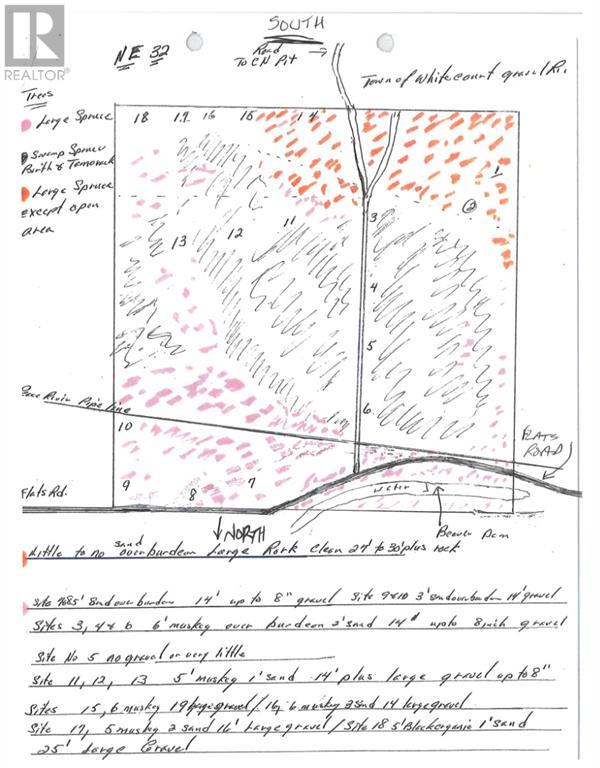 SOUTH
R
REALTOR®
NE 32
Road
To CN Pit
Town of Whitecourt gravel
Trees
Large Spruce
Swamp Spruce
Large Spruce
except open
area
18 17 16 15 14
1
2
3
11
12
13
4
5
6
Pipe line
10
9
8
7
FLATS
ROAD
Flats Rd.
water
NORTH
Beaver Dam
sand
Little to no overburdean Large Rock Clean 27' to 30' plus rock
Site 7&8 5' Snd over burden 14' up to 8" gravel Site 9&10 3' snd overburdan 14' gravel
Sites 3, 4 & 6 6' muskey over burdeen 2' sand 14" upto 8 inch gravel
Site No 5 no gravel or very little
Site 11, 12, 13 5' muskey 1' sand 14' plus large gravel up to 8"
Sites 15, 6 muskey 19 large gravel / 16, 6 muskey 2 sand 14 large gravel
Site 17, 5 muskey 2 sand 16' Large gravel / Site 18 5' Blackorganic 1' sand
25' Large Gravel